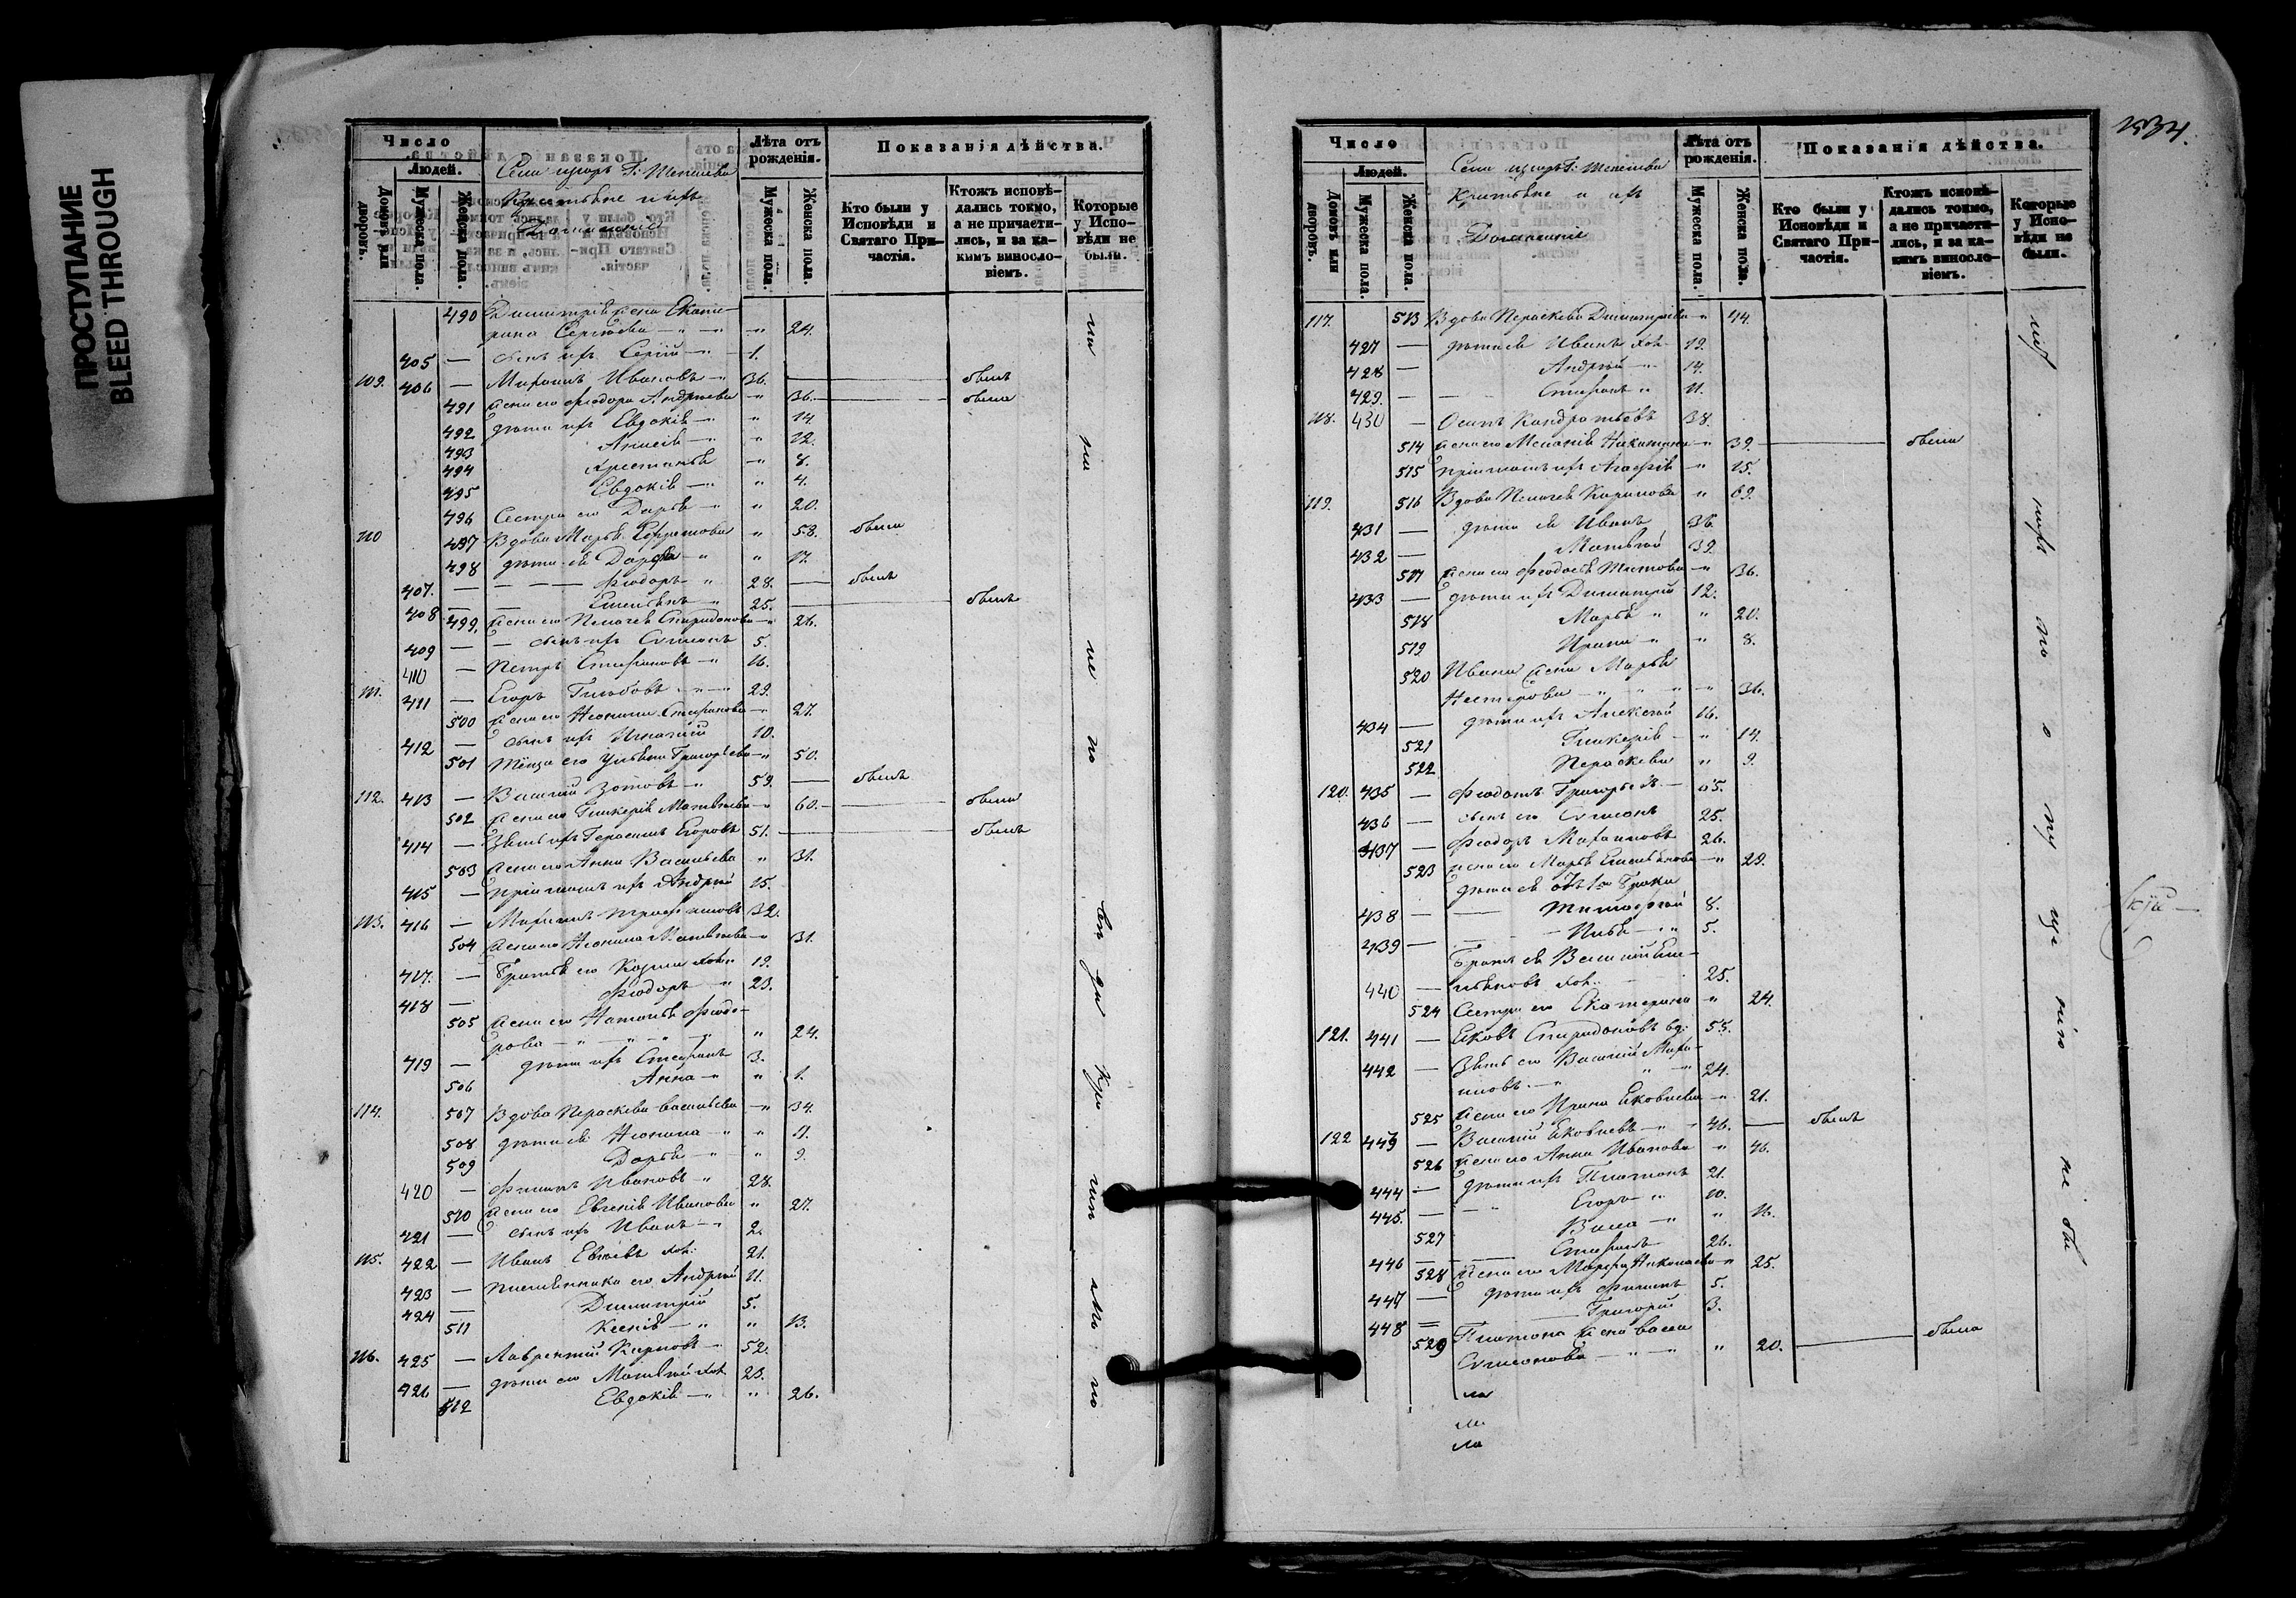 ПРОСТУПАНИЕ
BLEED THROUGH
Число
Людей.
Домовъ или дворовъ.
Мужеска пола.
Женска пола.
Лѣта отъ рожденія.
Мужеска пола.
Женска пола.
Показанія дѣйства.
Кто были у Исповѣди и Святаго Причастія.
Ктожъ исповѣдались токмо, а не причастились, и за какимъ винословіемъ.
Которые у Исповѣди не были.
Домашніе
490 Димитрія жена Екатерина Сергѣева 24.
405 — сынъ ихъ Сергій 1.
109. 406 — Миронъ Ивановъ 36. былъ
491 жена его Ѳеодора Андреева 36. была
492 дѣти ихъ Евдокія 14.
493 Анисія 12.
494 8.
495 Евдокія 4.
496 Сестра его Дарья 20.
110 497 Вдова Марья 58. была
498 дѣти ея Дарья 17.
407. — Ѳеодоръ 28. былъ
408 — Емельянъ 25. былъ
499. жена его Пелагея Спиридонова 26.
409 — сынъ ихъ Симеонъ 5.
410 — Петръ Стефановъ 16.
111. 411 — Егоръ Глѣбовъ 29.
500 жена его Неонила Стефанова 27.
412 — сынъ ихъ Игнатій 10.
501 Тёща его Ульяна Григорьева 50.
112. 413 — Василій Зотовъ 59. былъ
502 жена его Гликерія Матвѣева 60. была
414 — Зять ихъ Герасимъ Егоровъ 51. былъ
503 жена его Анна Васильева 31.
415 — пріимышъ ихъ Андрей 15.
113. 416 — Трофимовъ 32.
504 жена его Неонила Матвѣева 31.
417. — Братья его Козма хол. 19.
418 — Ѳеодоръ 23.
505 жена его Наталья Ѳеодорова 24.
419 — дѣти ихъ Стефанъ 3.
506 Анна 1.
114. 507 Вдова Параскева Васильева 34.
508 дѣти ея Неонила 11.
509 Дарья 9.
420 — Филипъ Ивановъ 28.
510 жена его Евгенія Иванова 27.
421 — сынъ ихъ Иванъ 2.
115. 422 — Иванъ хол. 21.
423 — племянники его Андрей 11.
424 — Димитрій 5.
511 Ксенія 13.
116. 425 — Лаврентій Карповъ 52.
426 — дѣти его Матвѣй хол. 23.
512 Евдокія 26.
Число
Людей.
Домовъ или дворовъ.
Мужеска пола.
Женска пола.
Лѣта отъ рожденія.
Мужеска пола.
Женска пола.
Показанія дѣйства.
Кто были у Исповѣди и Святаго Причастія.
Ктожъ исповѣдались токмо, а не причастились, и за какимъ винословіемъ.
Которые у Исповѣди не были.
Домашніе
117. 513 Вдова Параскева Димитріева 44.
427 — дѣти ея Иванъ хол. 19.
428 — Андрей 14.
429. — Стефанъ 11.
118. 430 — Осипъ Кондратьевъ 38.
514 жена его Меланія Никитина 39. была
515 пріимышъ ихъ Агафія 15.
119. 516 Вдова Пелагея 69.
431 — дѣти ея Иванъ 36.
432 — Матвѣй 39.
517 жена его Ѳеодосья Титова 36.
433 — дѣти ихъ Димитрій 12.
518 Марья 20.
519 Ирина 8.
520 Ивана жена Марья Нестерова 36.
434 — дѣти ихъ Алексѣй 16.
521 Гликерія 14.
522 Параскева 9.
120. 435 — Ѳедотъ Григорьевъ 65.
436 — сынъ его Симеонъ 25.
437 — Ѳеодоръ 26.
523 жена его Марья Емельянова 29.
дѣти ея отъ 1го брака
438 — Тимоѳей 8.
439 — 5.
440 — Братъ ея Василій Емельяновъ хол. 25.
524 Сестра его Екатерина 24.
121. 441 — Яковъ Спиридоновъ вд. 55.
442 — Зять его Василій 24.
525 жена его Ирина Яковлева 21.
122 443 — Василій Яковлевъ 46. былъ
526 жена его Анна Иванова 46.
444 — дѣти ихъ Платонъ 21.
445. — Егоръ 10.
527 Васса 16.
446 — Стефанъ 26.
528 жена его Марфа Николаева 25.
447 — дѣти ихъ Филипъ 5.
448 — Григорій 3.
529 Платона жена Васса Симеонова 20. была